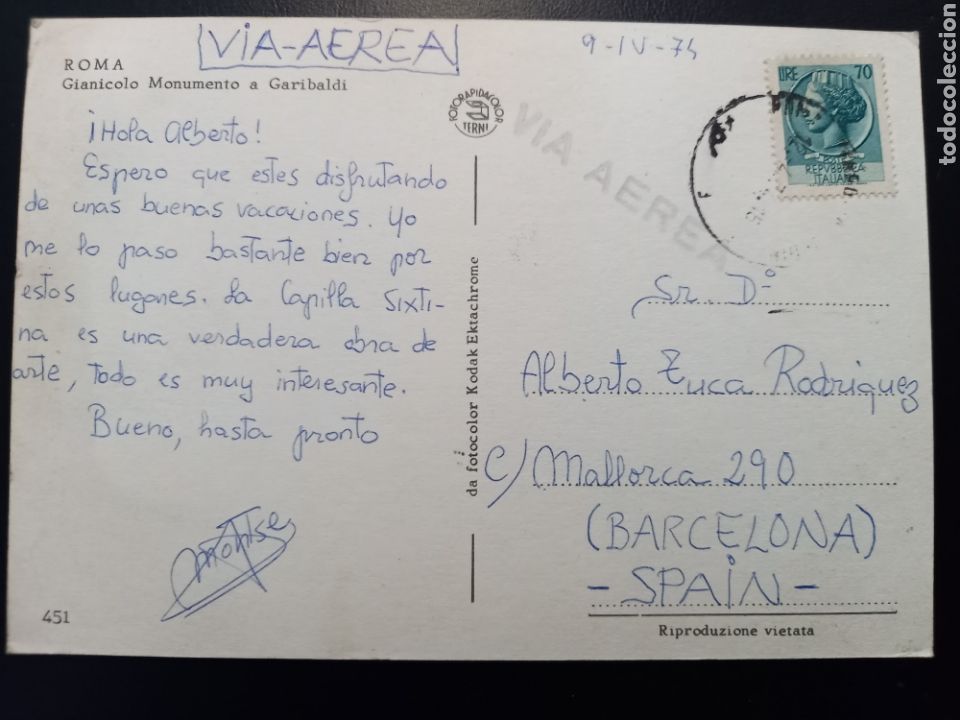 VIA-AEREA
9-IV-74
ROMA
Gianicolo Monumento a Garibaldi
¡Hola Alberto!
Espero que estes disfrutando
de unas buenas vacaciones. Yo
me lo paso bastante bien por
estos lugares. La Capilla Sixti-
na es una verdadera obra de
arte, todo es muy interesante.
Bueno, hasta pronto
Montse
451
FOTORAPIDACOLOR
TERNI
da fotocolor Kodak Ektachrome
VIA AEREA
LIRE 70
POSTE
REPVBBLICA
ITALIANA
Sr. Dº
Alberto Tuca Rodriguez
C/ Mallorca 290
(BARCELONA)
- SPAIN -
Riproduzione vietata
todocoleccion